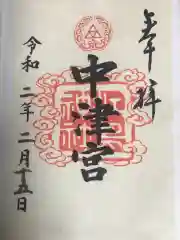 奉拝
中津宮
令和二年二月十五日